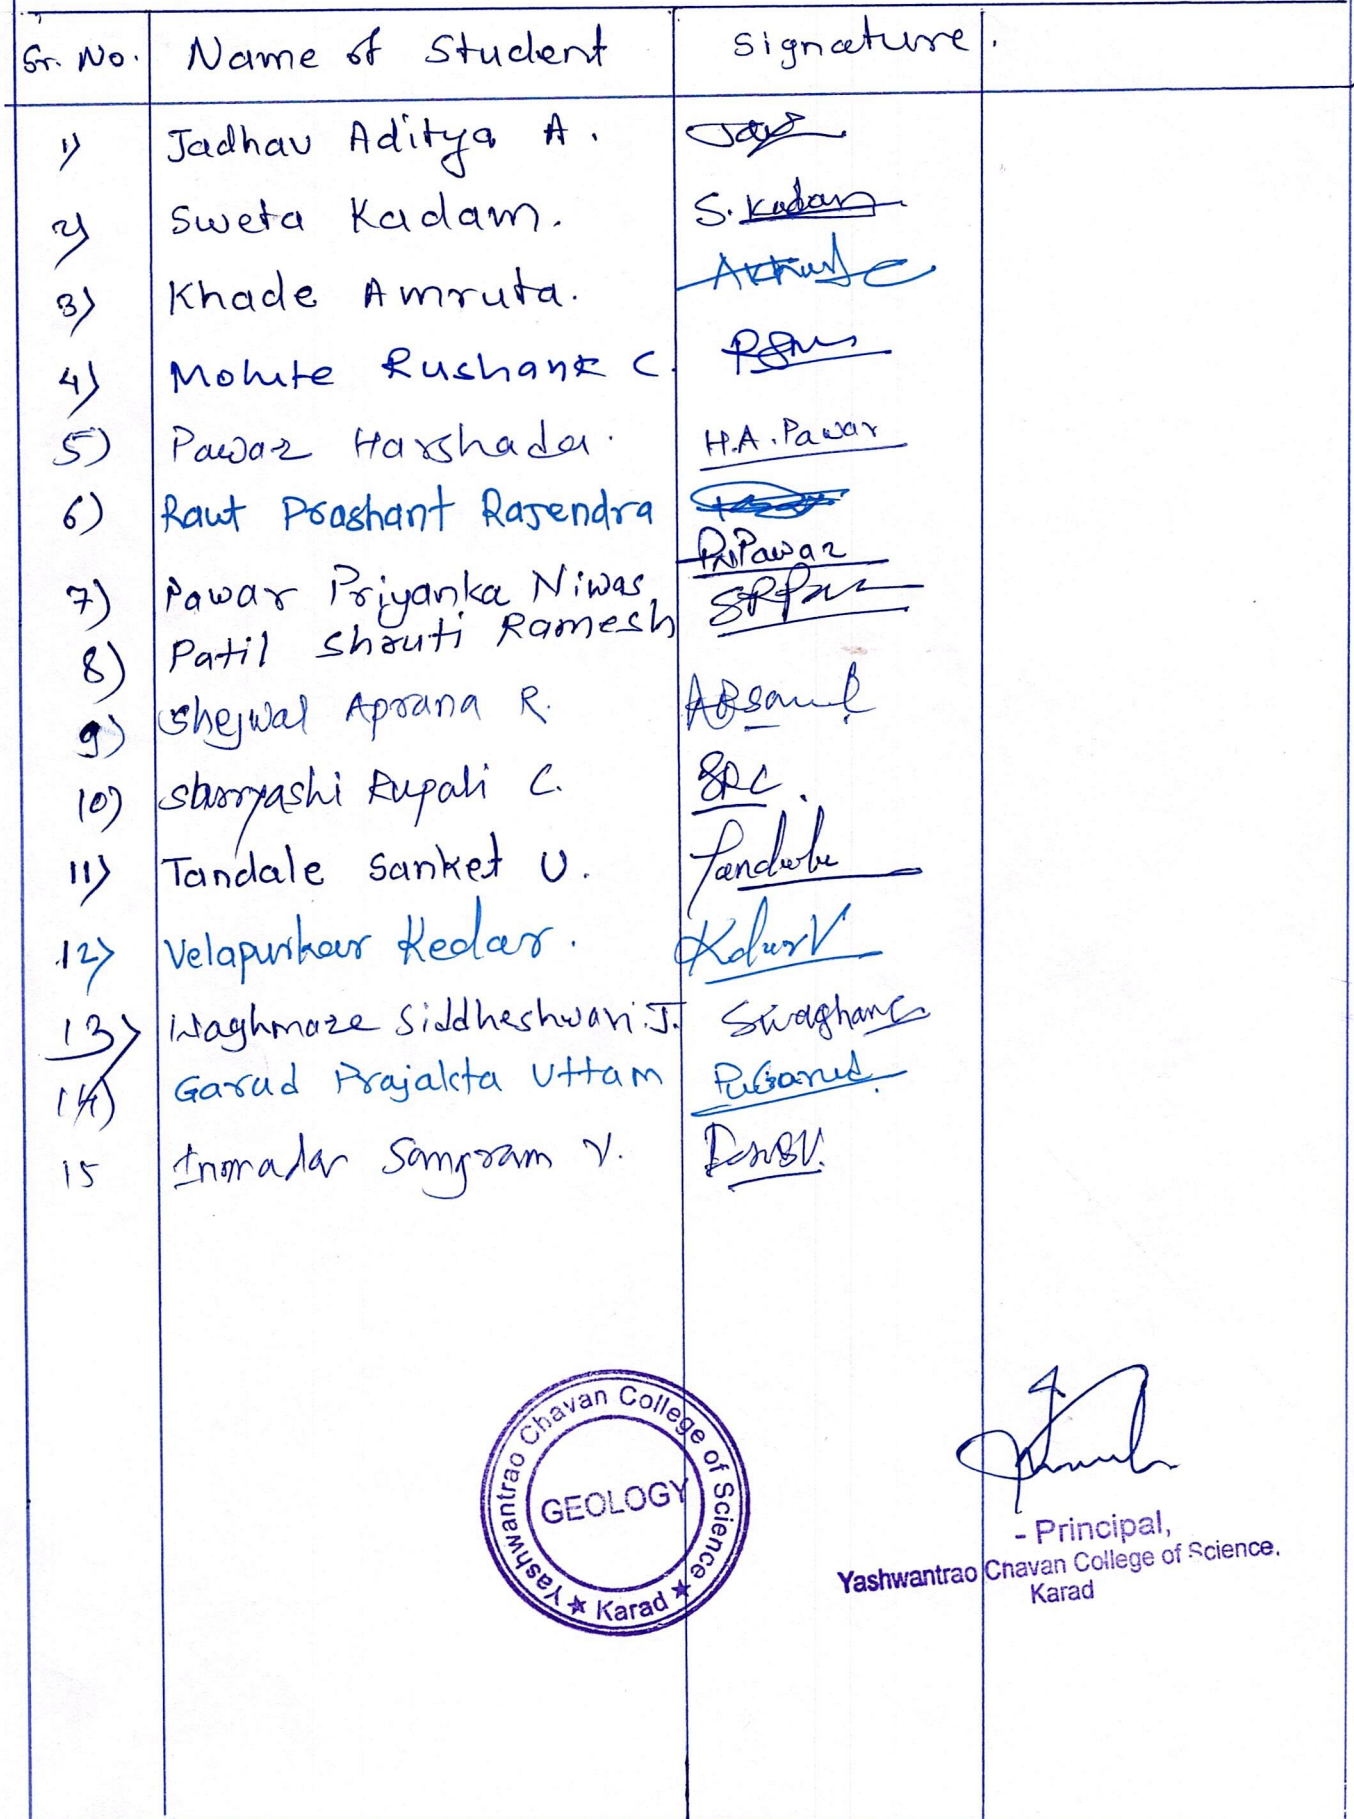 Sr. No. Name of Student Signature.
1) Jadhav Aditya A.
2) Sweta Kadam. S. Kadam
3) Khade Amruta.
4) Mohite Rushank C.
5) Pawar Harshada. H.A. Pawar
6) Raut Prashant Rajendra
7) Pawar Priyanka Niwas P.N.Pawar
8) Patil Shruti Ramesh
9) Shejwal Aprana R.
10) Rupali C. SRC.
11) Tandale Sanket U. Tandale
12) Velapurkar Kedar. KedarV
13) Waghmare Siddheshwari.J.
14) Garud Prajakta Uttam PuGarud.
15 Inamdar Sangram V.
Yashwantrao Chavan College of Science
★ Karad ★
GEOLOGY
- Principal,
Yashwantrao Chavan College of Science.
Karad